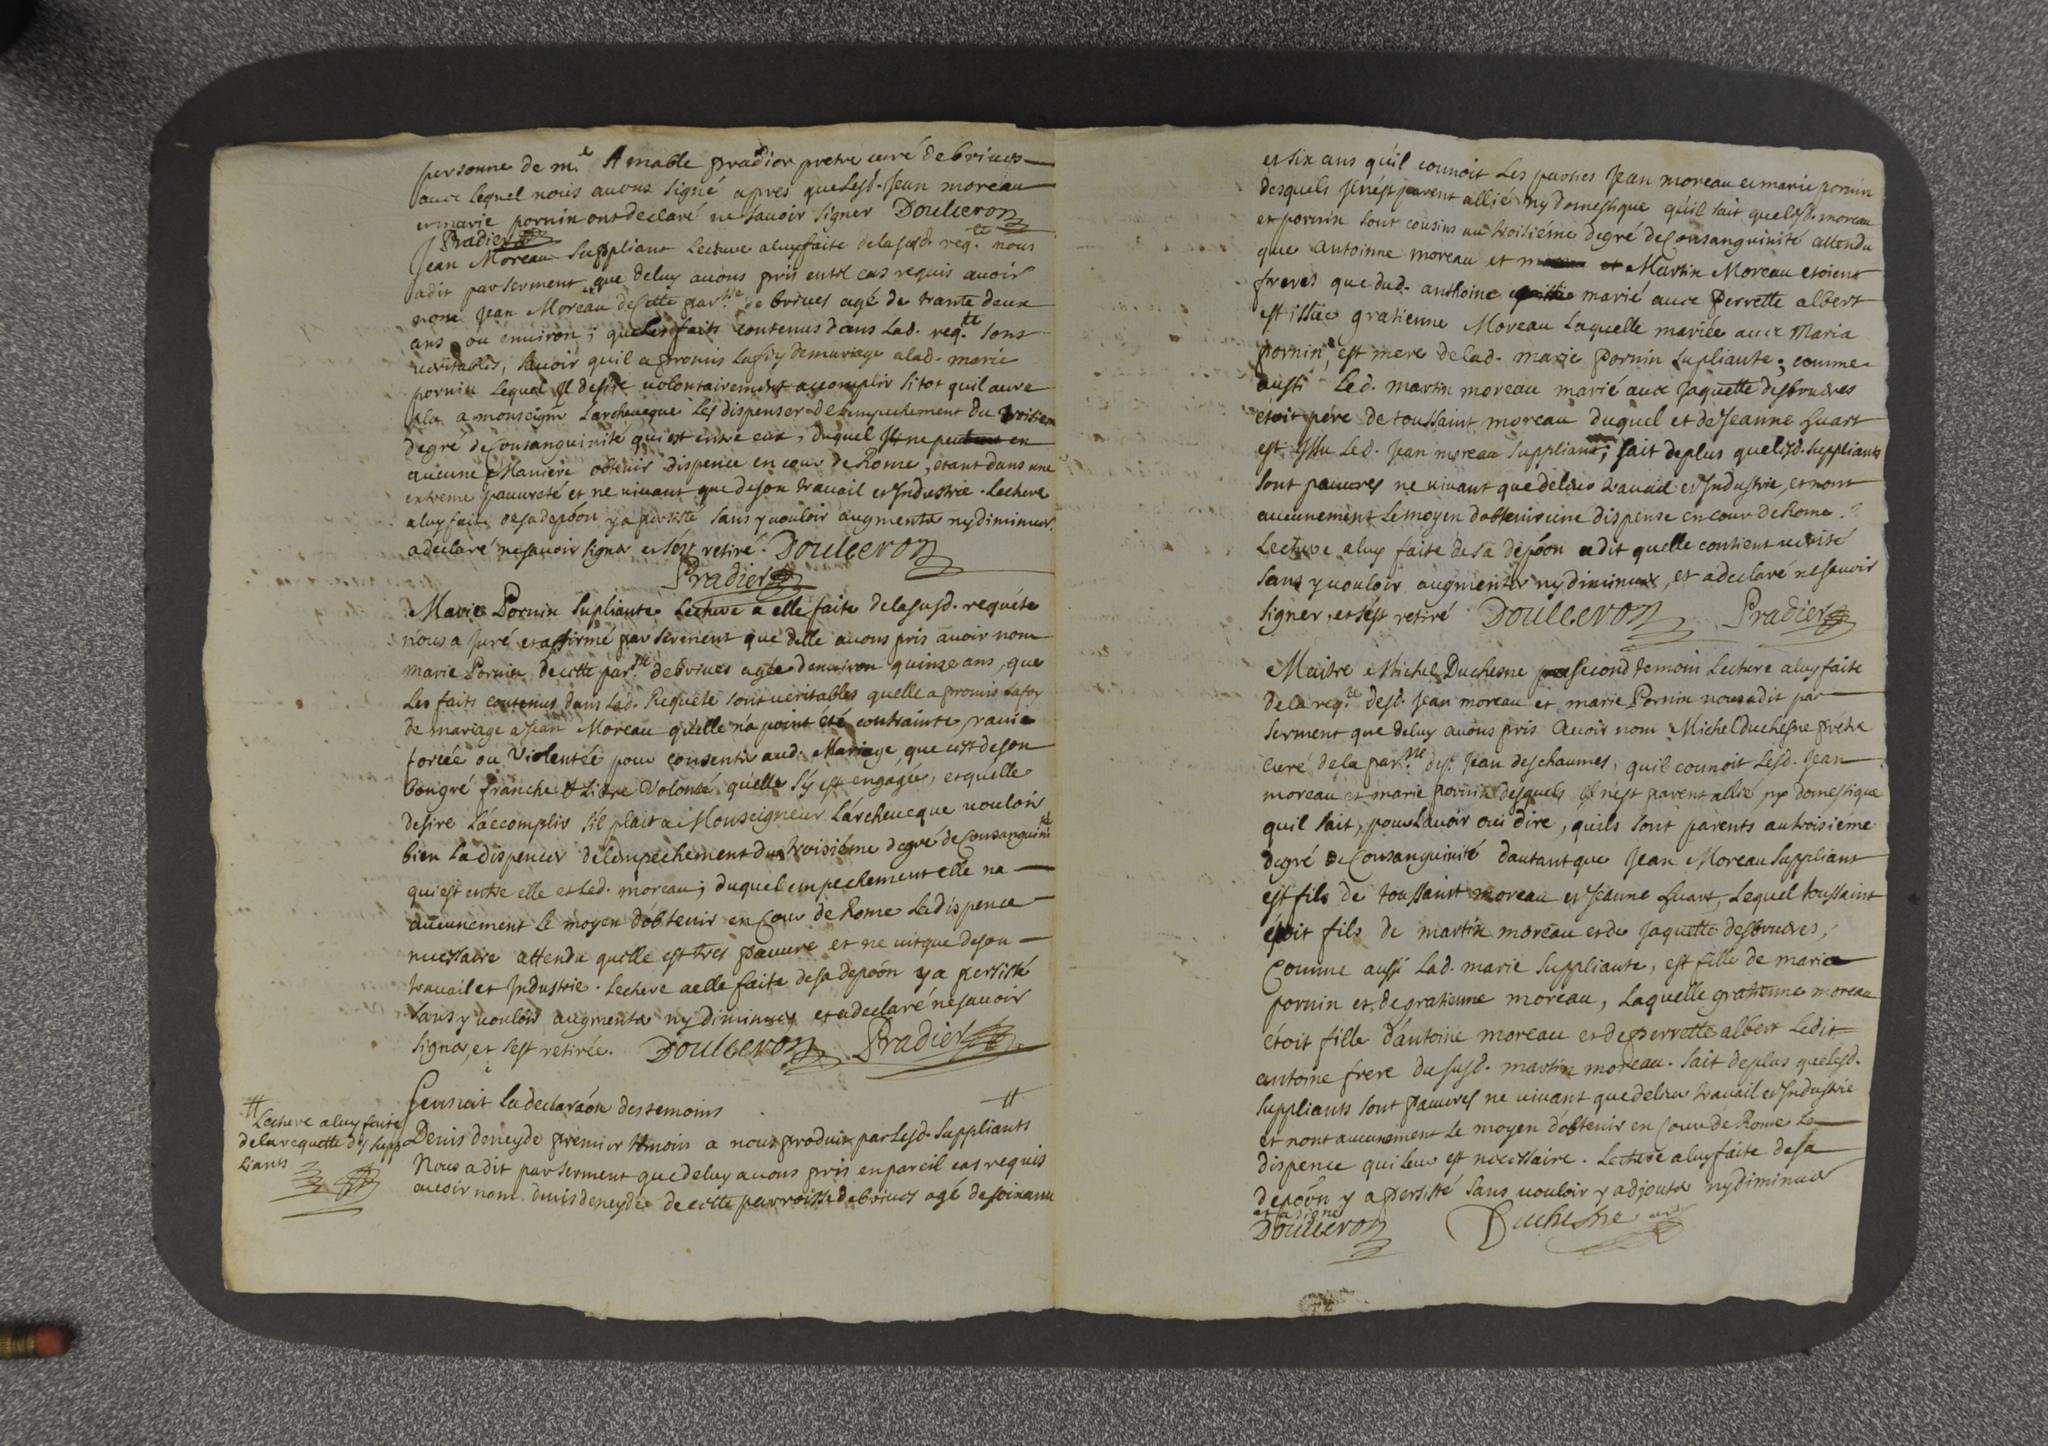 personne de m.e Amable pradior pretre curé de brives
avec lequel nous avons signé apres que lesd. Jean moreau
et marie pornin ont declaré ne savoir signer Doulceron
Pradier
Jean Moreau Suppliant Lecture a luy faite de la susd. reqte. nous
a dit par serment que de luy avons pris en tel cas requis avoir
nom Jean Moreau de cette parsse de brives agé de trante deux
ans ou environ; que les faits contenus dans Lad. reqte. sont
veritables, savoir qu'il a promis la foy de mariage a lad. marie
pornin lequel Il desire volontairement accomplir sitot quil aura
plu a monseignr Larcheveque les dispenser de l'empechement du troisiem
degré de consanguinité qui est entre eux, duquel Il ne peut en
aucune Maniere obtenir dispence en cour de Rome, etant dans une
extreme pauvreté et ne vivant que de son travail et Industrie. Lecture
a luy faite de sa depôon y a persisté sans y vouloir augmenter ny diminuer
a declaré ne savoir signer et s'est retiré. Doulceron
Pradier
Marie Pornin Supliante Lecture a elle faite de la susd. requéte
nous a Juré et affirmé par serement que delle avons pris avoir nom
marie Pornin de cette parsse de brives agée denviron quinze ans, que
Les faits contenus dans Lad. Requéte sont véritables quelle a promis La foy
de mariage a Jean Moreau qu'elle n'a point été contrainte, ravie
forcée ou Violentée pour consentir aud. Mariage, que c'est de son
bongré franche & Libre Volonté qu'elle s'y est engagée, et qu'elle
desire L'accomplir s'il plait a Monseigneur L'archeveque vouloir
bien La dispencer de l'empechement du troisiéme degré de Consanguinité
qui est entre elle et Led. moreau; duquel empechement elle na
aucunement Le moyen d'obtenir en Cour de Rome La dispence
necessaire attendu quelle est tres pauvre et ne vit que de son
travail et Industrie. Lecture a elle faite de sa depôon y a persisté
sans y vouloir augmenter ny diminuer et a declaré ne savoir
signer, et s'est retirée. Doulceron Pradier
Sensuit la declaraôn des temoins
# Lecture a luy faite
de la requette des supp
liants
Denis deneyde premier témoin a nous produit par Lesd. Suppliants #
Nous a dit par serment que de luy avons pris en pareil cas requis
avoir nom denis deneyde de cette parroisse de brives agé de soixante
et six ans qu'il connoit Les parties Jean moreau et marie pornin
desquels Il n'est parent allié ny domestique qu'il sait que lesd. moreau
et pornin sont cousins au troisiéme degré de Consanguinité attendu
que antoinne moreau et Martin Moreau etoient
freres que dud. anthoine marié avec Perrette albert
est issue gratienne Moreau Laquelle mariée avec Maria
pornin, est mere de lad. marie pornin supliante; comme
austi Led. martin moreau marié avec Jaquette desbrueres
étoit pére de toussaint moreau duquel et de Jeanne huart
est Issu Led. Jean moreau Suppliant; sait de plus que lesd. suppliants
sont pauvres ne vivant que de leur travail et Industrie, et n'ont
aucunement Le moyen d'obtenir une dispense en cour de Rome.
Lecture a luy faite de sa depôon a dit quelle contient verité
sans y vouloir augmenter ny diminuer, et a declaré ne savoir
signer, et s'est retiré Doulceron Pradier
Maitre Michel Duchesne second temoin Lecture a luy faite
de la reqte. desd. Jean moreau et marie Pornin nous a dit par
serment que de luy avons pris Avoir nom Michel duchesne prétre
curé de la parsse. de st. Jean des chaumes, qu'il connoit Lesd. Jean
moreau et marie pornin desquels Il n'est parent allié ny domestique
qu'il sait, pour Lavoir oui dire, qu'ils sont parents au troisiéme
degré de Consanguinité dautant que Jean Moreau Suppliant
est fils de toussaint moreau et Jeanne huart, Lequel toussaint
étoit fils de martin moreau et de Jaquette desbrueres,
Comme aussi Lad. marie Suppliante, est fille de maria
pornin et de gratienne moreau, Laquelle gratienne moreau
étoit fille d'antoine moreau et de perrette albert Ledit
antoine frere du susd. martin moreau. sait de plus que lesd.
suppliants sont pauvres ne vivant que de leur travail et Industrie
et n'ont aucunement Le moyen d'obtenir en Cour de Rome La
dispence qui leur est necessaire. Lecture a luy faite de sa
depôon y a persisté sans vouloir y adjouter ny diminuer
et a signé
Doulceron Duchesne